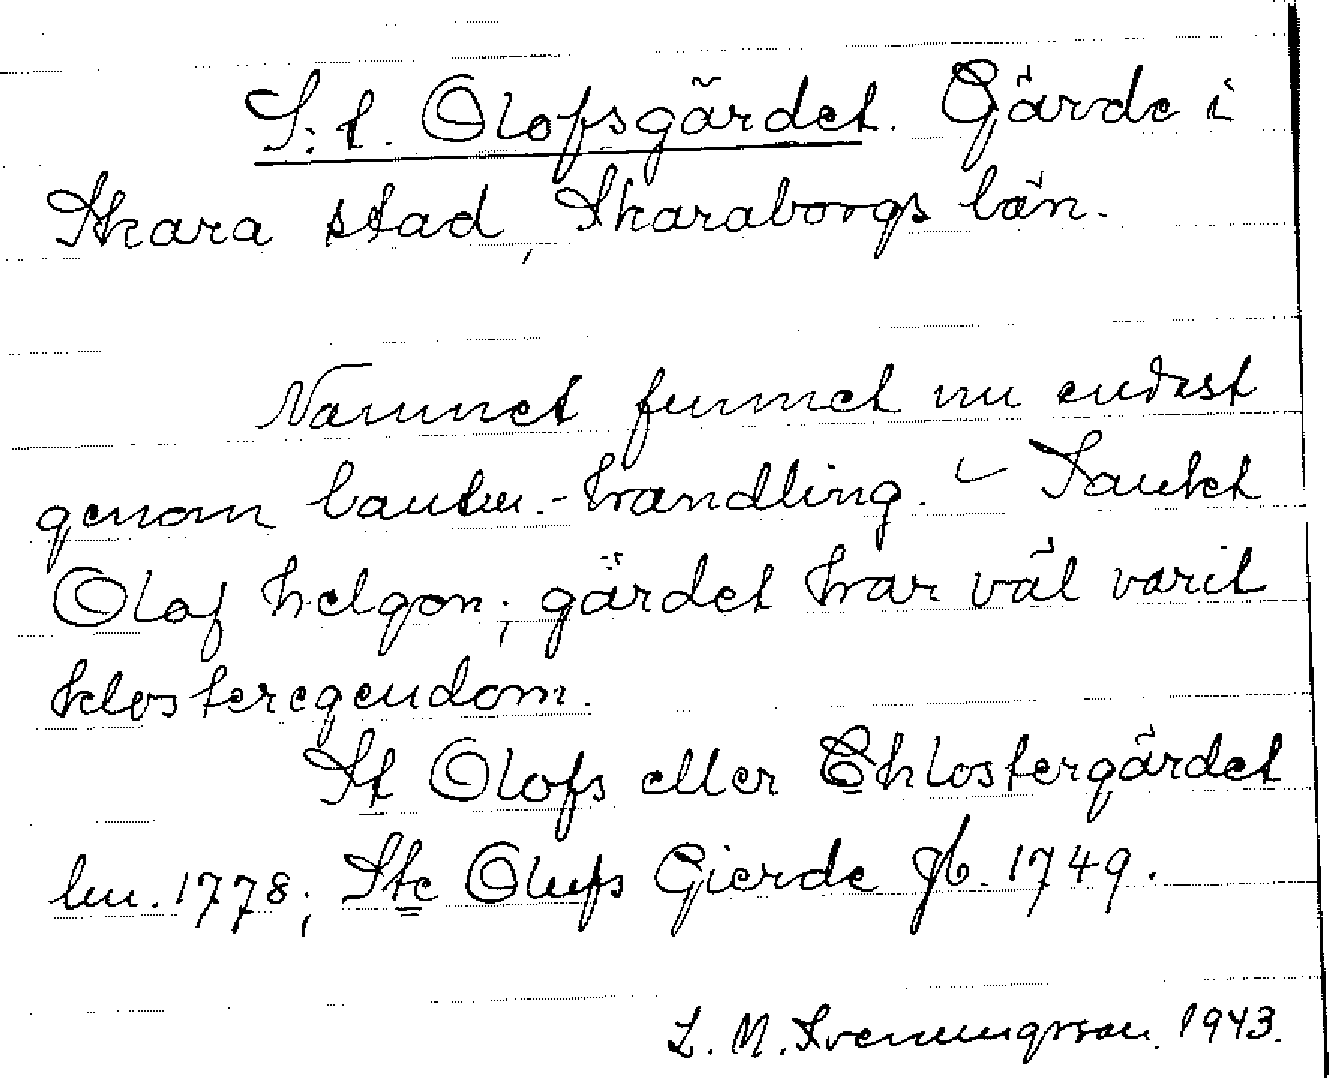 S:t. Olofsgärdet. Gärde i
Skara stad, Skaraborgs län.
Namnet funnet nu endast
genom lantm.-handling. - Sankt
Olof helgon; gärdet har väl varit
klosteregendom.
St Olofs eller Chlostergärdet
lm. 1778; Ste Olufs Gierde jb. 1749.
L. M. Svenungsson. 1943.